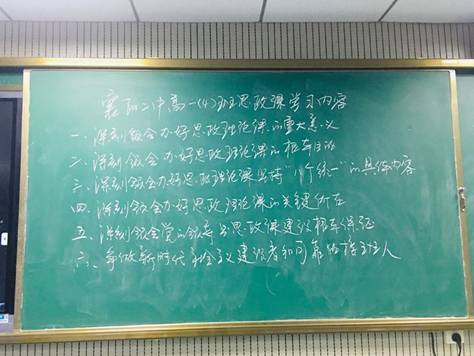 襄阳二中高一(4)班思政课学习内容
一、深刻领会办好思政理论课的重大意义
二、深刻领会办好思政理论课的根本目的
三、深刻领会办好思政理论课坚持“八个统一”的具体内容
四、深刻领会办好思政理论课的关键所在
五、深刻领会党的领导思政课建设根本保证
六、争做新时代社会主义建设者和可靠的接班人